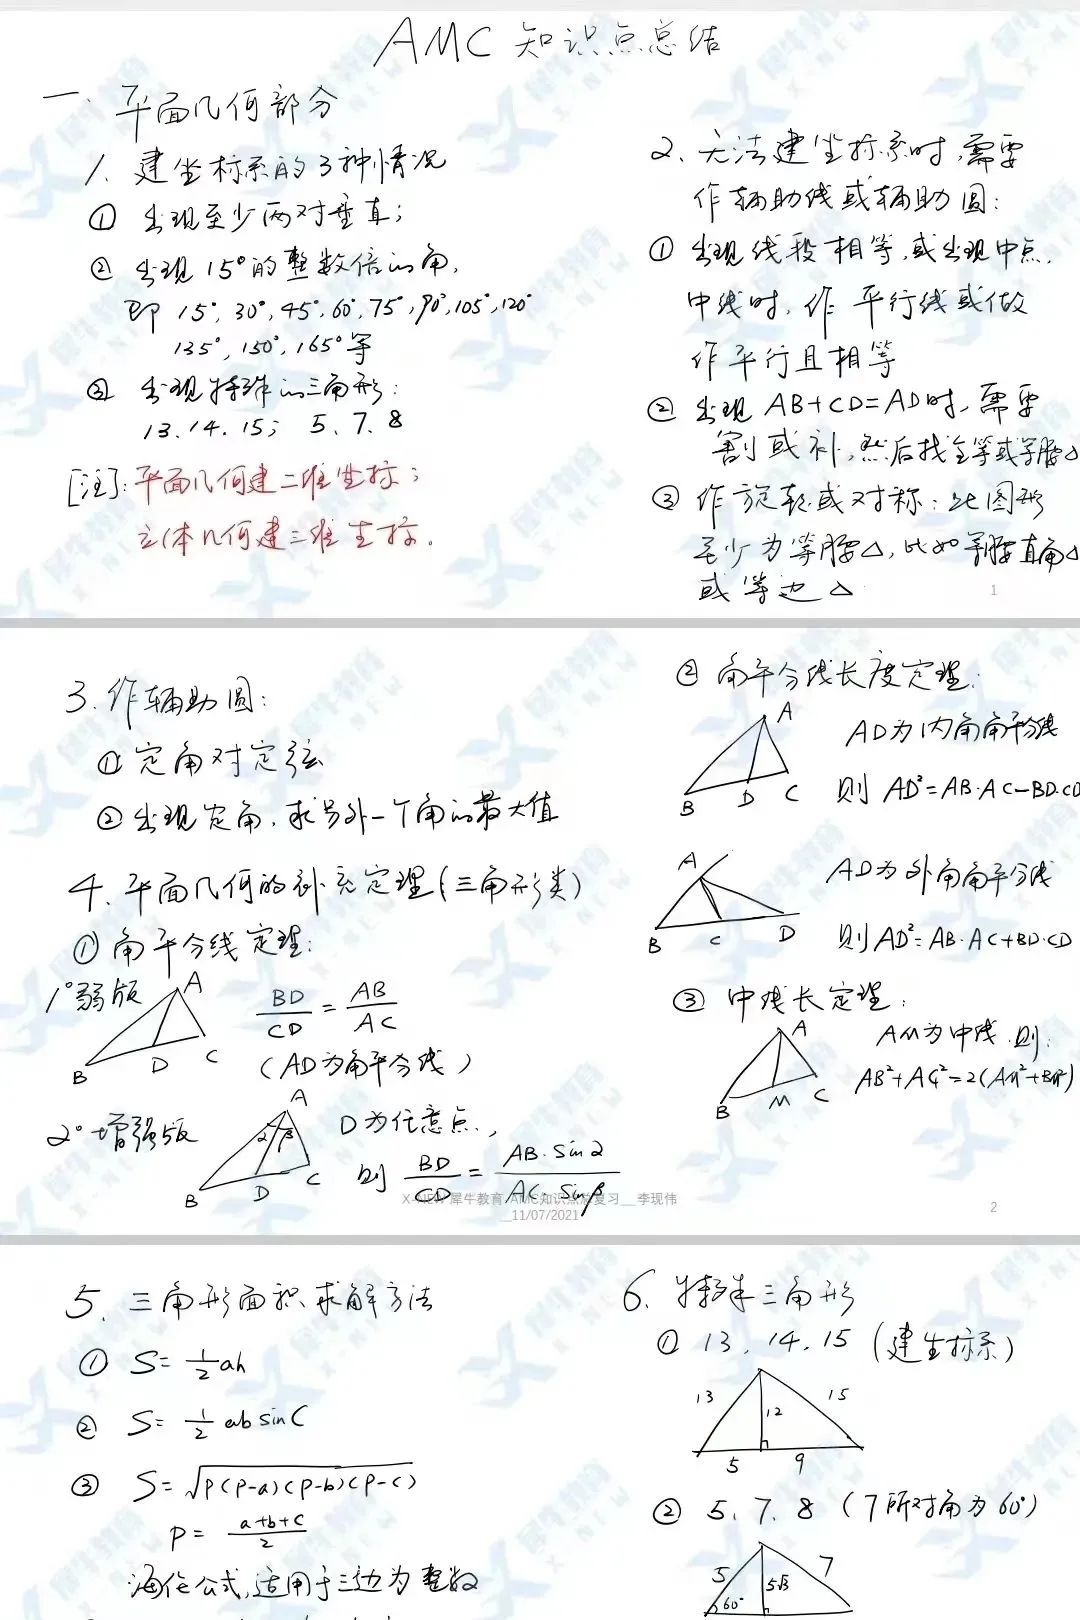 AMC 知识点总结
一. 平面几何部分
1. 建坐标系的3种情况
① 出现至少两对垂直;
② 出现15°的整数倍的角,
即 15°, 30°, 45°, 60°, 75°, 90°, 105°, 120°
135°, 150°, 165°等
③ 出现特殊的三角形:
13. 14. 15; 5、7、8
[注]: 平面几何建二维坐标;
立体几何建三维坐标.
2、无法建坐标系时, 需要
作辅助线或辅助圆:
① 出现线段相等, 或出现中点,
中线时, 作 平行线或做
作平行且相等
② 出现 AB+CD=AD时, 需要
割或补, 然后找全等或等腰△
③ 作旋转或对称: 此图形
至少为等腰△, 比如等腰直角△
或等边△
1
3. 作辅助圆:
① 定角对定弦
② 出现定角, 求另外一个角的最大值
4. 平面几何的补充定理(三角形类)
① 角平分线定理:
1° 弱版
A
B
D
C
BD/CD = AB/AC
(AD为角平分线)
2° 增强版
A
α β
B
D
C
D为任意点,
则 BD/CD = AB·sinα/AC·sinβ
② 角平分线长度定理:
A
B
D
C
AD为内角角平分线
则 AD²=AB·AC-BD·CD
A
B
C
D
AD为外角角平分线
则AD²=AB·AC+BD·CD
③ 中线长定理:
A
B
M
C
AM为中线, 则:
AB²+AC²=2(AM²+BM²)
犀牛教育 AMC知识点总复习__李现伟
__11/07/2021
2
5. 三角形面积求解方法
① S= 1/2 ah
② S= 1/2 ab sinC
③ S=√P(P-a)(P-b)(P-c)
P= a+b+c/2
海伦公式, 适用于三边为整数
6. 特殊三角形
① 13, 14, 15 (建坐标系)
13
12
15
5
9
② 5、7、8 (7所对角为60°)
5
5√3
7
60°